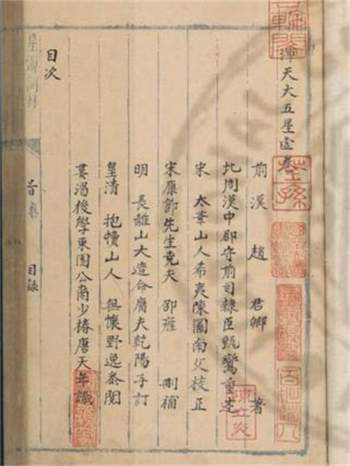 天大五星
前漢 趙 君卿 著
北周漢中郡守前司隸臣甄鸞重述
宋 太華山人希夷陳圖南父校正
宋康節先生堯夫 邵雍 刪補
明 長雍山大造命腐夫乾陽子訂
皇清 抱犢山人 無懷野逸參閱
婁後學東園公裔少椿唐天年識
目次
目錄